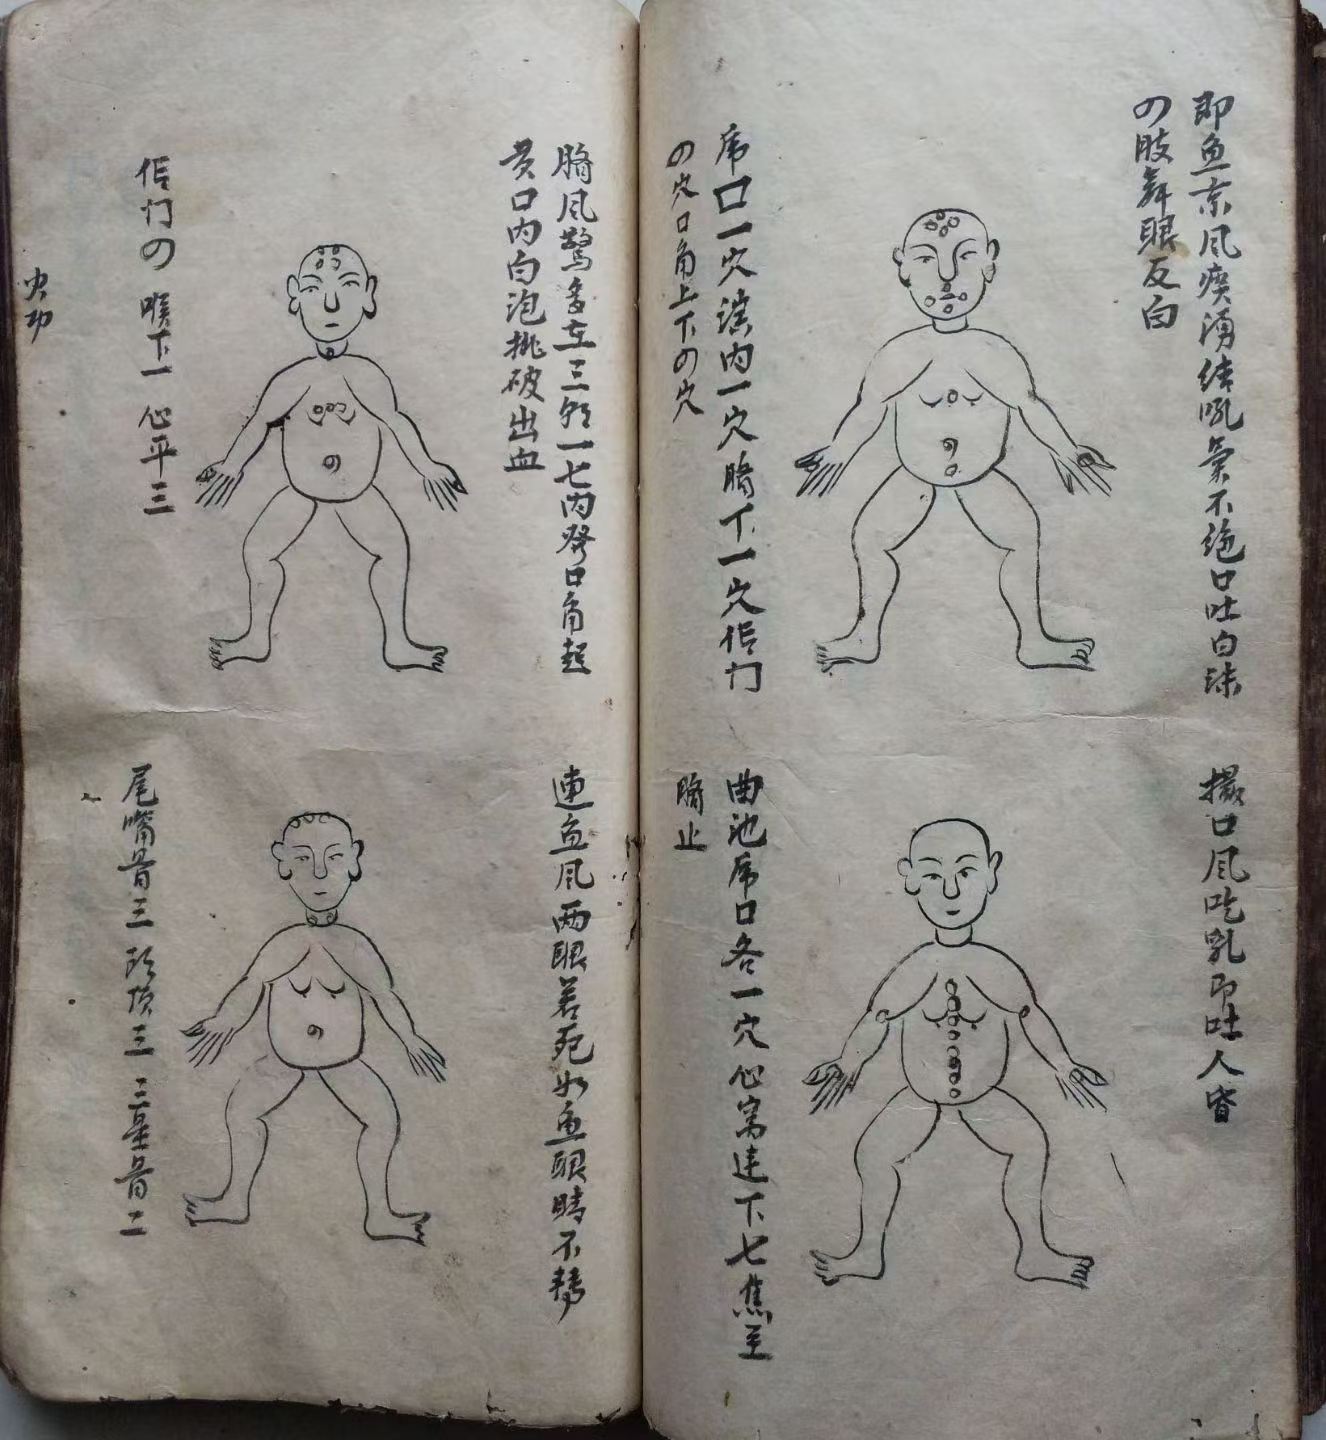 即鱼京风痰湧结吼氣不绝口吐白沫
の肢舞眼反白
虎口一穴演内一穴脐下一穴信门
の穴口角上下の穴
撮口风吃乳即吐人昏
曲池虎口各一穴心窝连下七焦至
脐止
脐风驚多在三朝一七内發口角起
黄口内白泡挑破出血
信门の 喉下一 心平三
連鱼风两眼若死如鱼眼睛不轉
尾嘴骨三 頭顶三 三星骨二
火功